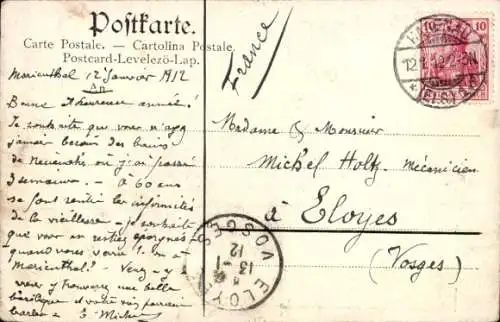 Postkarte.
Carte Postale. – Cartolina Postale.
Postcard-Levelező-Lap.
France
10 10
HAGENAU
12.1.12.
(ELSASS)
Marienthal 12 Janvier 1912
Bonne & heureuse année!
Je souhaite que vous n'ayez
jamais besoin des bains
de où j'ai passé
3 semaines. – À 60 ans
se font sentir les infirmités
de la vieillesse – je souhaite
que vous en restiez épargnés –
quand vous verra-t-on à
Marienthal? Venez-y
vous y trouverez une belle
basilique et votre
Madame & Monsieur
Michel Holtz Mécanicien
à Eloyes
(Vosges)
ELOYES
13 - 1
12
VOSGES